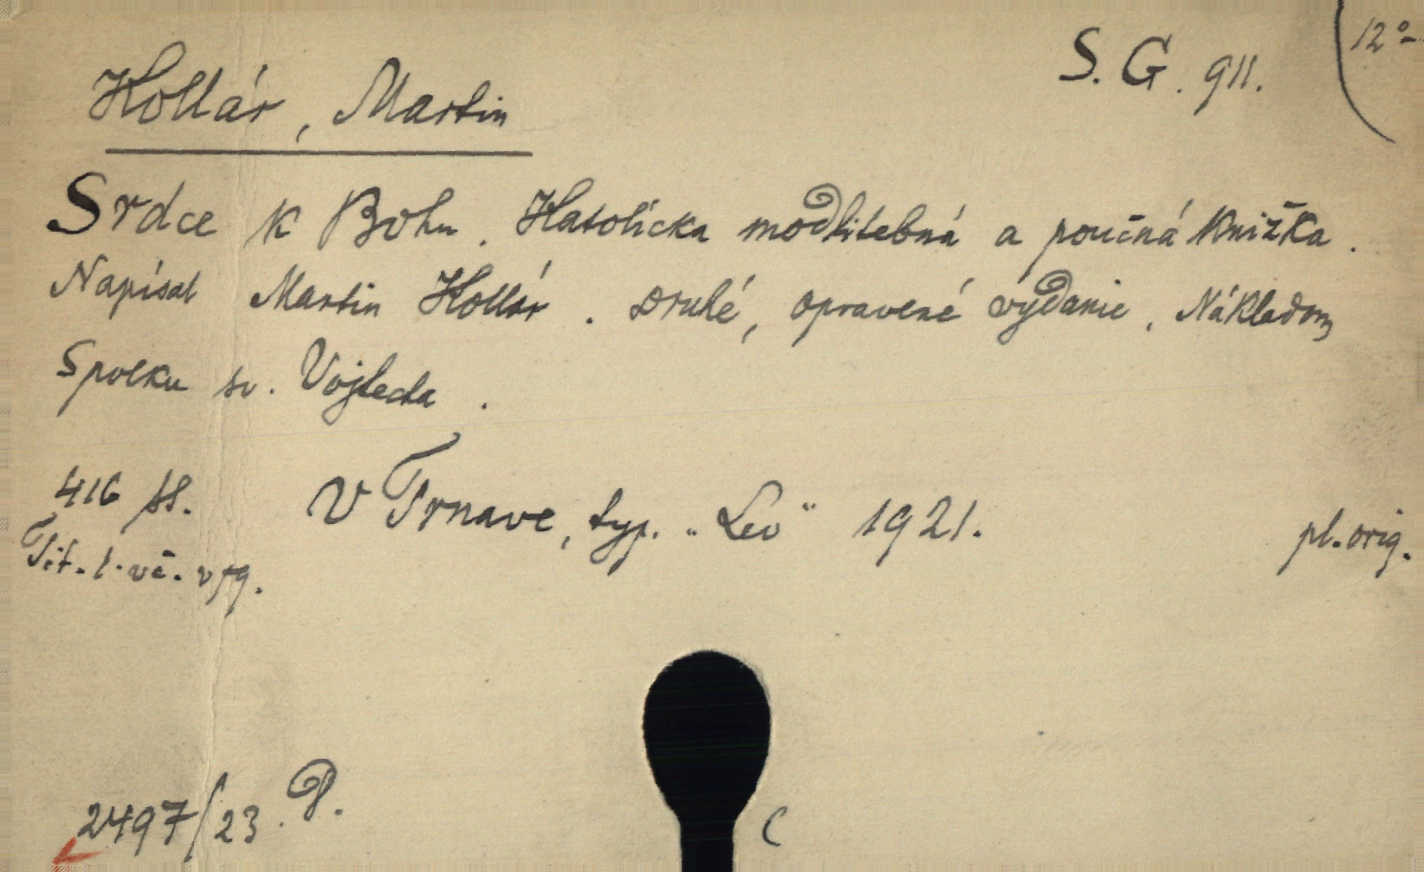 S. G. 911.
12°
Kollár, Martin
Srdce k Bohu. Katolícka modlitebná a poučná knižka.
Napísal Martin Kollár. Druhé, opravené vydanie. Nákladom
Spolku sv. Vojtecha.
416 ss. V Trnave, typ. „Lev" 1921. pl. orig.
Tit. l. vč. v pg.
2497/23. P.
C